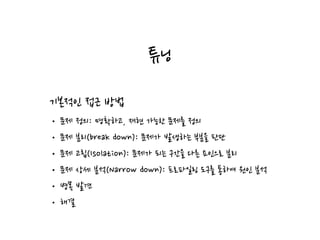 튜닝
기본적인 접근 방법
• 문제 정의: 명확하고, 재현 가능한 문제를 정의
• 문제 분리(break down): 문제가 발생하는 부분을 판단
• 문제 고립(Isolation): 문제가 되는 구간을 다른 요인으로 분리
• 문제 상세 분석(Narrow down): 프로파일링 도구를 통하여 원인 분석
• 병목 발견
• 해결